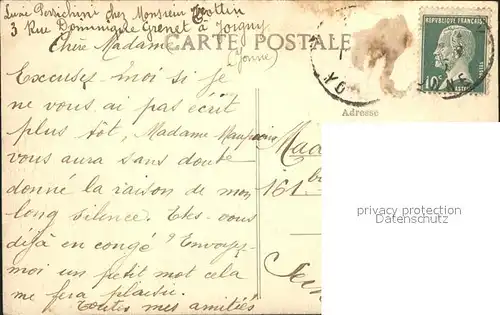 chez Monsieur Tottin
3 Rue Dominique Grenet à Joigny
(Yonne)
CARTE POSTALE
Chère Madame
Excusez-moi si je
ne vous ai pas écrit
plus tôt, Madame
vous aura sans doute
donné la raison de mon
long silence. Etes-vous
déjà en congé ? Envoyez-
moi un petit mot cela
me fera plaisir.
Toutes mes amitiés
REPUBLIQUE FRANÇAISE
10c
POSTES
YO
Adresse
161 bis
privacy protection
Datenschutz